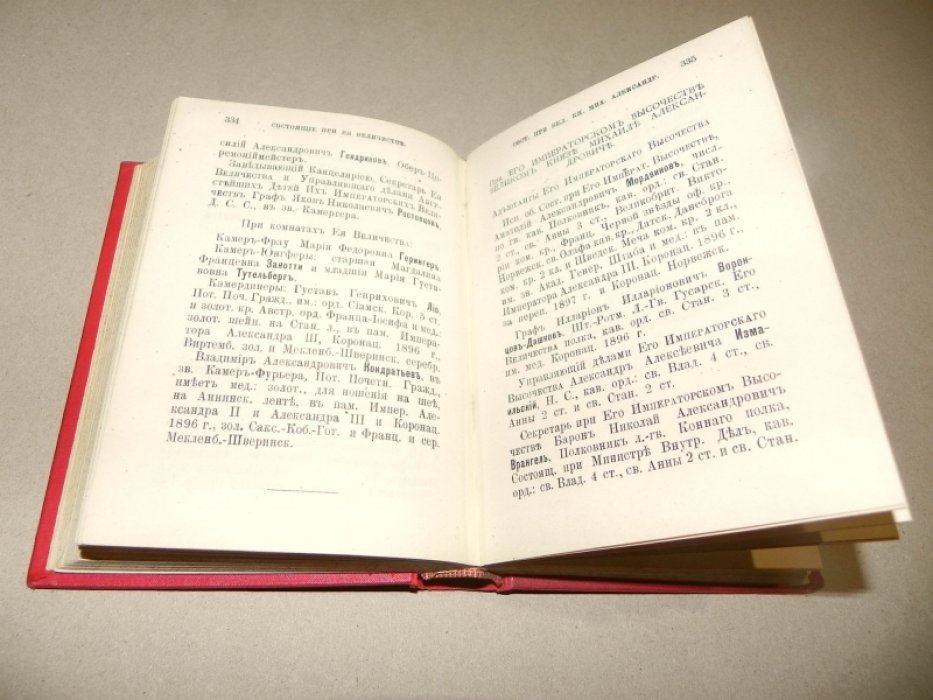 334
СОСТОЯЩІЕ ПРИ ЕЯ ВЕЛИЧЕСТВѢ.
силій Александровичъ Гендриковъ, Оберъ-Це-
ремоніймейстеръ.
Завѣдывающій Канцеляріею, Секретарь Ея
Величества и Управляющій дѣлами Авгу-
стѣйшихъ Дѣтей Ихъ Императорскихъ Вели-
чествъ, Графъ Яковъ Николаевичъ Ростовцовъ,
Д. С. С., въ зв. Камергера.
При комнатахъ Ея Величества:
Камеръ-Фрау Марія Федоровна Герингеръ.
Камеръ-Юнгферы: старшая Магдалина
Францевна Занотти и младшія Марія Густа-
вовна Тутельбергъ.
Камердинеры: Густавъ Генриховичъ Ліо,
Пот. Поч. Гражд., им.: орд. Сіамск. Кор. 5 ст.
и золот. кр. Австр. орд. Франца-Іосифа и мед.:
золот. шейн. на Стан. л., въ пам. Импера-
тора Александра III, Коронац. 1896 г.,
Виртемб. зол. и Мекленб.-Шверинск. серебр.
Владиміръ Александровичъ Кондратьевъ, въ
зв. Камеръ-Фурьера, Пот. Почетн. Гражд.,
имѣетъ мед.: золот., для ношенія на шеѣ,
на Аннинск. лентѣ, въ пам. Импер. Але-
ксандра II и Александра III и Коронац.
1896 г., зол. Сакс.-Коб.-Гот. и Франц. и сер.
Мекленб.-Шверинск.
335
СОСТ. ПРИ ВЕЛ. КН. МИХ. АЛЕКСАНДР.
При ЕГО ИМПЕРАТОРСКОМЪ ВЫСОЧЕСТВѢ
ВЕЛИКОМЪ КНЯЗѢ МИХАИЛѢ АЛЕКСАН-
ДРОВИЧѢ.
Адъютанты Его Императорскаго Высочества
Исп. об. Сост. при Его Импер. Высочествѣ,
Анатолій Александровичъ Мордвиновъ, числ.
по гв. кав. Полковникъ, кав. орд.: св. Стан.
2 ст., св. Анны 3 ст.; Великобрит. Викто-
ріи ком. кр., Франц. Черной звѣзды оф. кр.,
Норвежск. св. Олафа кав. кр., Датск. Данеброга
ком. кр. 2 кл. и Шведск. Меча ком. кр. 2 кл.,
им. зн. Акад. Генер. Штаба и мед.: въ пам.
Императора Александра III, Коронац. 1896 г.,
за переп. 1897 г. и Коронац. Норвежск.
Графъ Илларіонъ Илларіоновичъ Ворон-
цовъ-Дашковъ, Шт.-Ротм. Л.-Гв. Гусарск. Его
Величества полка, кав. орд. св. Стан. 3 ст.,
им. мед. Коронац. 1896 г.
Управляющій дѣлами Его Императорскаго
Высочества Александръ Алексѣевичъ Изма-
ильскій, Н. С., кав. орд.: св. Влад. 4 ст., св.
Анны 2 ст. и св. Стан. 2 ст.
Секретарь при Его Императорскомъ Высо-
чествѣ Баронъ Николай Александровичъ
Врангель, Полковникъ л.-гв. Коннаго полка,
Состоящ. при Министрѣ Внутр. Дѣлъ, кав.
орд.: св. Влад. 4 ст., св. Анны 2 ст. и св. Стан.